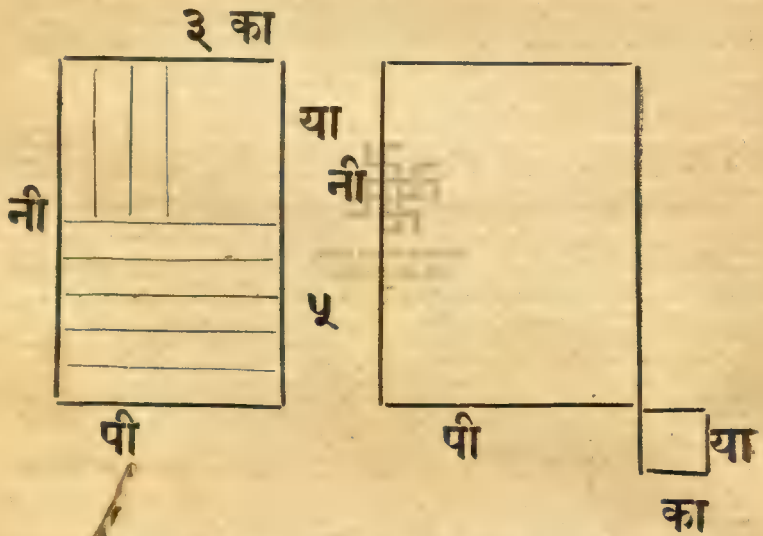 ३ का
या
नी
नी
५
पी
पी
या
का